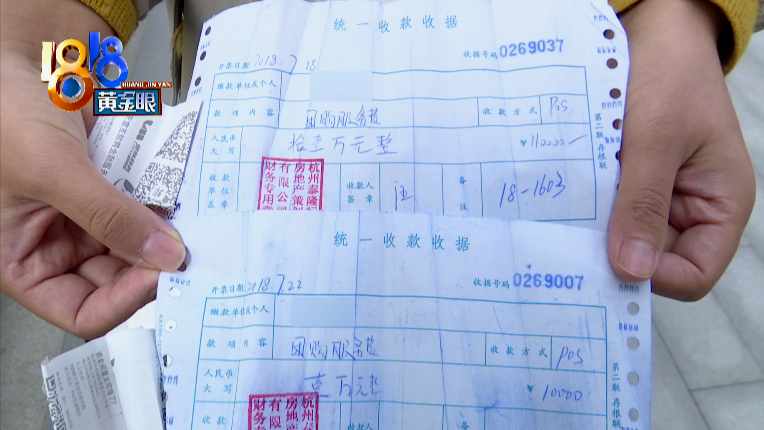 1818
HUANG JIN YAN
黄金眼
统一收款收据
开票日期2018.7.28
收据号码0269037
缴款单位及个人
款项内容 团购服务费 收款方式 POS
人民币大写 拾壹万元整 ¥110000
收款单位盖章 收款人签章 汪 备注 18-1603
杭州泰隆
房地产策
有限公司
财务专用章
第二联 存根联
统一收款收据
开票日期:2018.7.22
收据号码0269007
缴款单位及个人
款项内容 团购服务费 收款方式 POS
人民币大写 壹万元整 ¥10000
收款
杭州泰隆
房地产
有限公
财务专
第二联 存根联